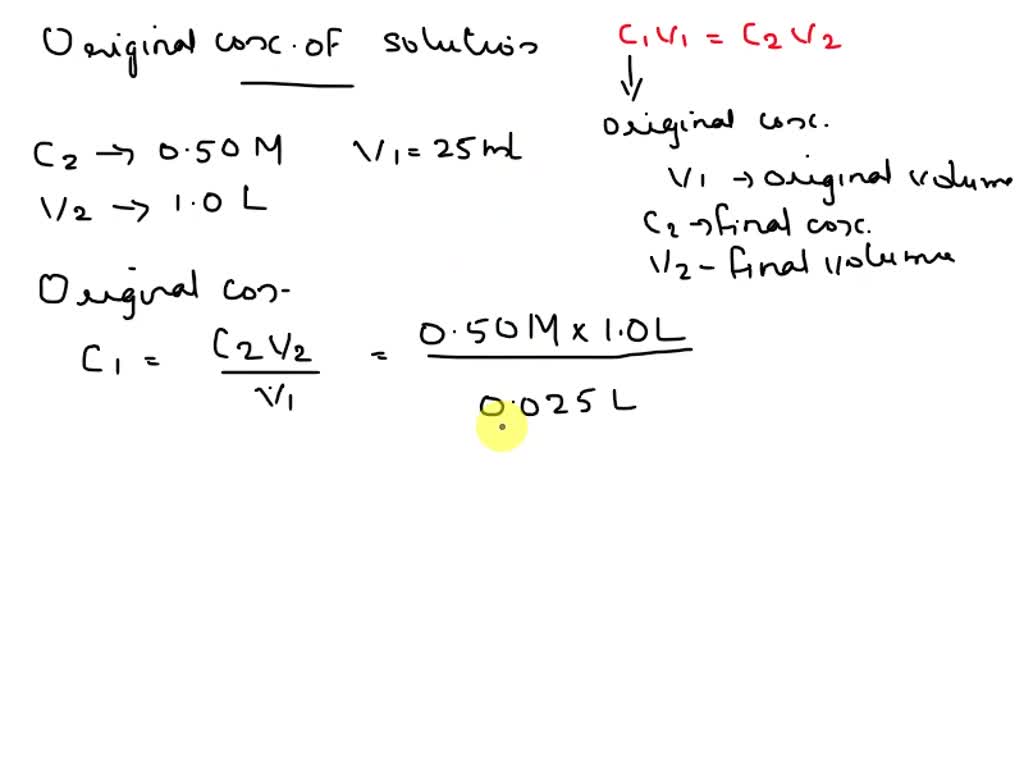 Original conc. of solution
C1V1 = C2V2
original conc.
V1 → original volume
C2 → final conc.
V2 - final volume
C2 → 0.50 M V1 = 25 mL
V2 → 1.0 L
Original con-
C1 = C2V2 / V1 = 0.50 M x 1.0 L / 0.025 L